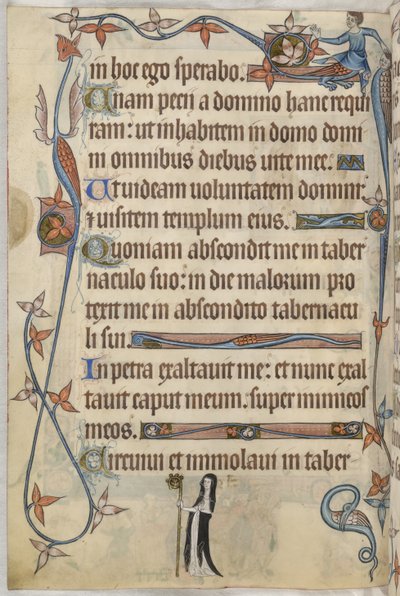 in hoc ego sperabo.
Unam pecii a domino hanc requi
ram: ut inhabitem in domo domi
ni omnibus diebus uite mee.
Ut uideam uoluntatem domini:
⁊ uisitem templum eius.
Quoniam abscondit me in taber
naculo suo: in die malorum pro
texit me in abscondito tabernacu
li sui.
In petra exaltauit me: et nunc exal
tauit caput meum. super inimicos
meos.
Circuiui et immolaui in taber